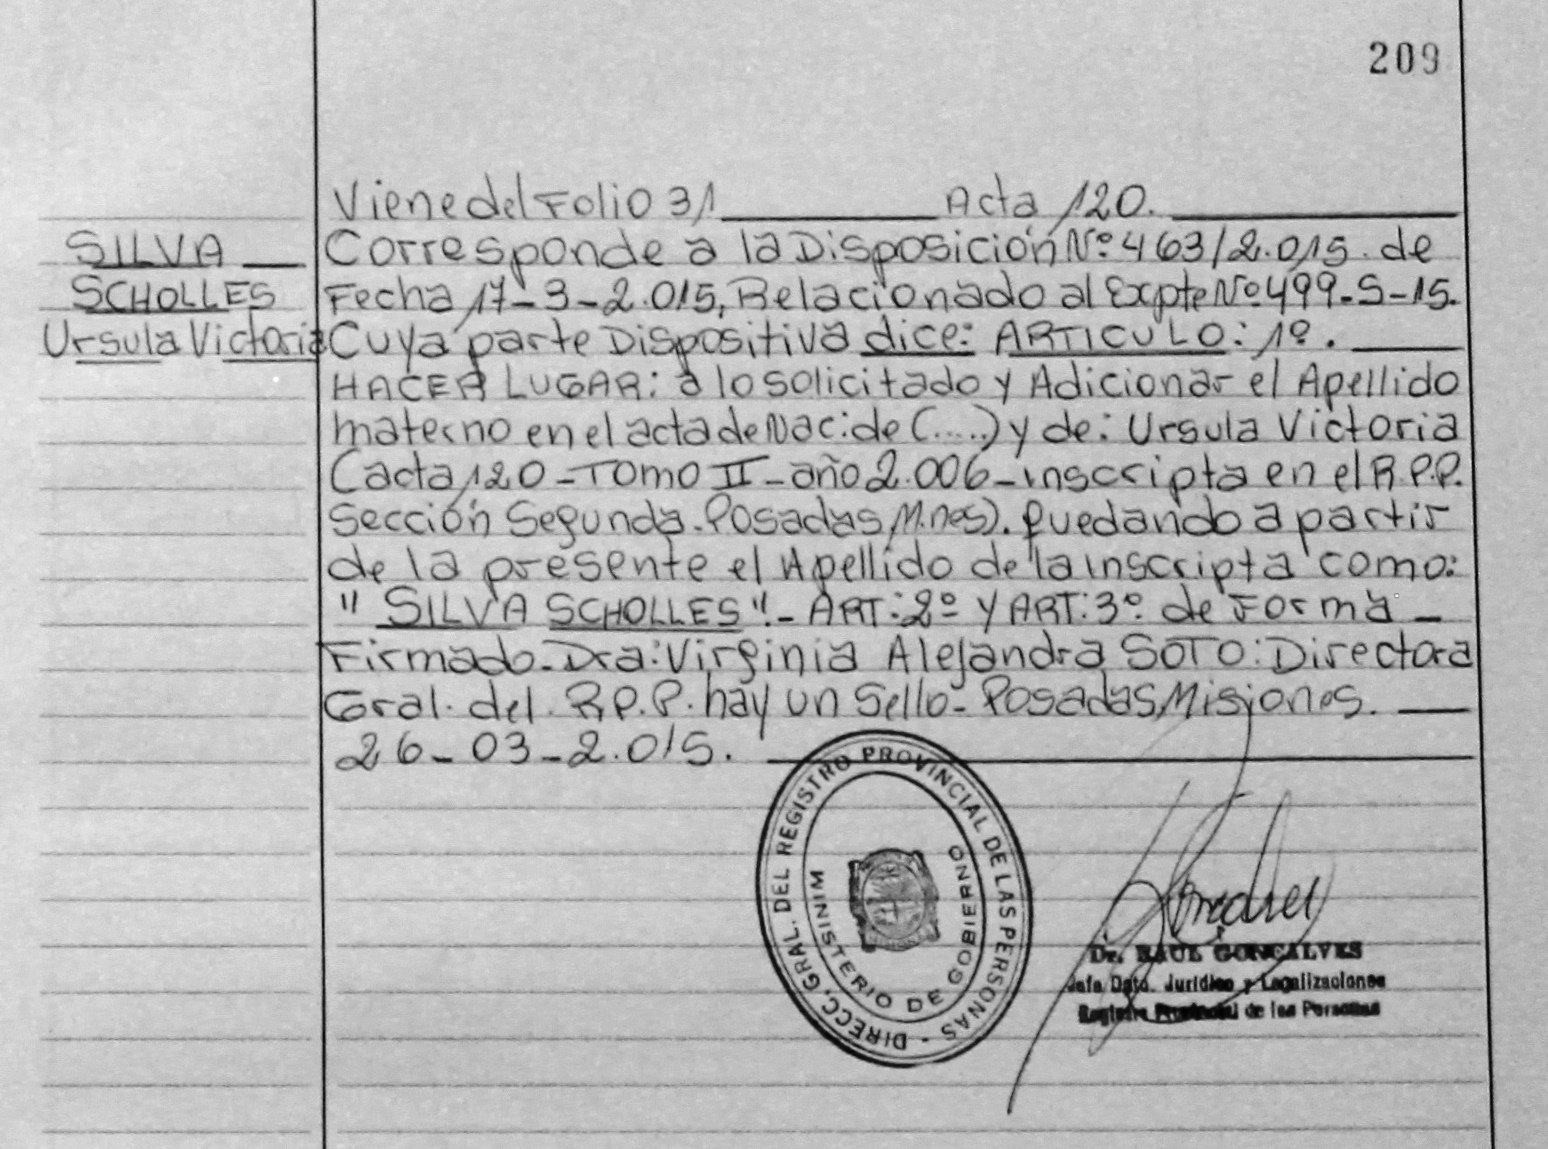 209
Viene del Folio 31 Acta 120.
SILVA
SCHOLLES
Ursula Victoria
Corresponde a la Disposición Nº 463/2.015. de
Fecha 17-3-2.015, Relacionado al Expte Nº 499-S-15.
Cuya parte Dispositiva dice: ARTICULO: 1º.
HACER LUGAR: a lo solicitado y Adicionar el Apellido
materno en el acta de Nac: de (....) y de: Ursula Victoria
(acta 120 - TOMO II - año 2.006 - inscripta en el R.P.P.
Sección Segunda. Posadas, M.nes). quedando a partir
de la presente el Apellido de la inscripta como:
" SILVA SCHOLLES ". - ART: 2º Y ART: 3º de Forma -
Firmado - Dra: Virginia Alejandra SOTO: Directora
Gral. del. R.P.P. hay un Sello - Posadas, Misiones.
26-03-2.015.
DIRECC. GRAL. DEL REGISTRO PROVINCIAL DE LAS PERSONAS -
MINISTERIO DE GOBIERNO
Dr. RAUL GONCALVES
Jefe Dpto. Jurídico y Legalizaciones
Registro Provincial de las Personas